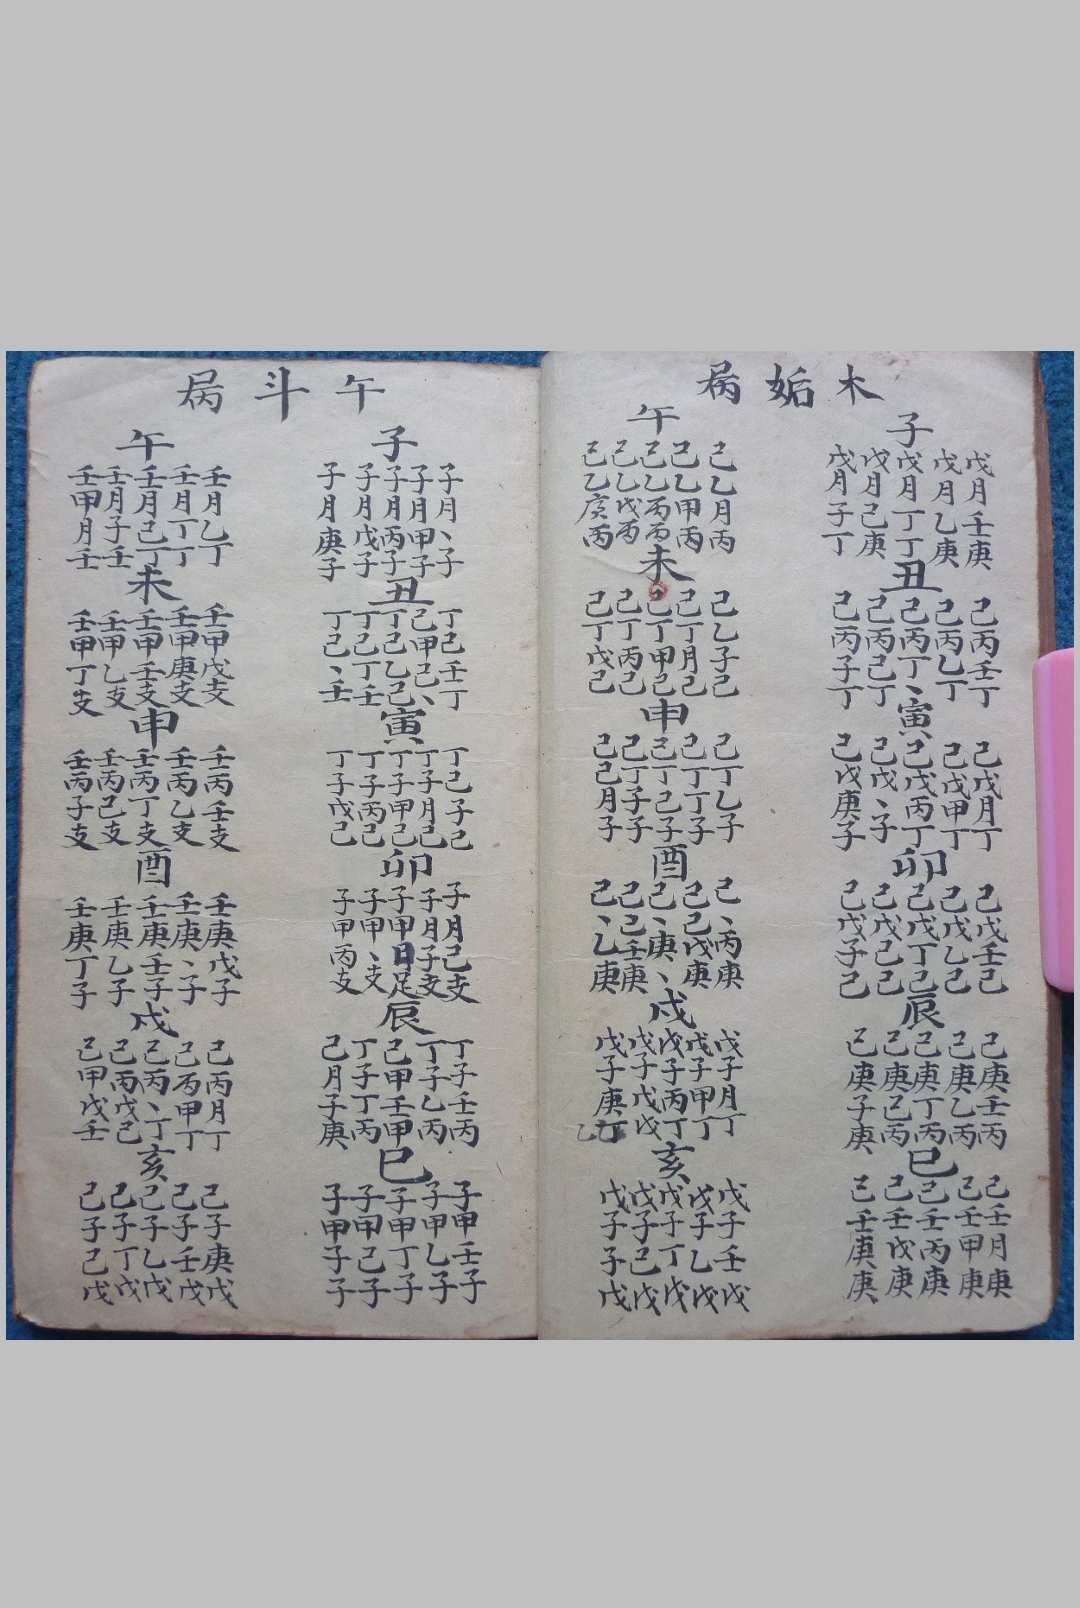 木姤局
子
戊月壬庚
戊月乙庚
戊月丁丁
戊月己庚
戊月子丁
丑
己丙壬丁
己丙乙丁
己丙丁、
己丙己丁
己丙子丁
寅
己戊月丁
己戊甲丁
己戊丙丁
己戊、子
己戊庚子
卯
己戊壬己
己戊乙己
己戊丁己
己戊己己
己戊子己
辰
己庚壬丙
己庚乙丙
己庚丁丙
己庚己丙
己庚子庚
巳
己壬月庚
己壬甲庚
己壬丙庚
己壬戊庚
己壬庚庚
午
己乙月丙
己乙甲丙
己乙丙丙
己乙戊丙
己乙庚丙
未
己乙子己
己丁月己
己丁甲己
己丁丙己
己丁戊己
申
己丁乙子
己丁丁子
己丁己子
己丁子子
己己月子
酉
己、丙庚
己己戊庚
己、庚、
己己壬庚
己、乙庚
戌
戊子月丁
戊子甲丁
戊子丙丁
戊子戊戊
戊子庚
亥
戊子壬戊
戊子乙戊
戊子丁戊
戊子己戊
戊子子戊
午斗局
子
子月、子
子月甲子
子月丙子
子月戊子
子月庚子
丑
丁己壬丁
己甲己、
丁己乙己
丁己丁壬
丁己、壬
寅
丁己子己
丁子月己
丁子甲己
丁子丙己
丁子戊己
卯
子月己支
子月子支
子甲日足
子甲、支
子甲丙支
辰
丁子壬丙
丁子乙丙
己甲壬甲
丁子丁丙
己月子庚
巳
子甲壬子
子甲乙子
子甲丁子
子甲己子
子甲子子
午
壬月乙丁
壬月丁丁
壬月己丁
壬月子壬
壬甲月壬
未
壬甲戊支
壬甲庚支
壬甲壬支
壬甲乙支
壬甲丁支
申
壬丙壬支
壬丙乙支
壬丙丁支
壬丙己支
壬丙子支
酉
壬庚戊子
壬庚、子
壬庚壬子
壬庚乙子
壬庚丁子
戌
己丙月丁
己丙甲丁
己丙、丁
己丙戊己
己甲戊壬
亥
己子庚戊
己子壬戊
己子乙戊
己子丁戊
己子己戊